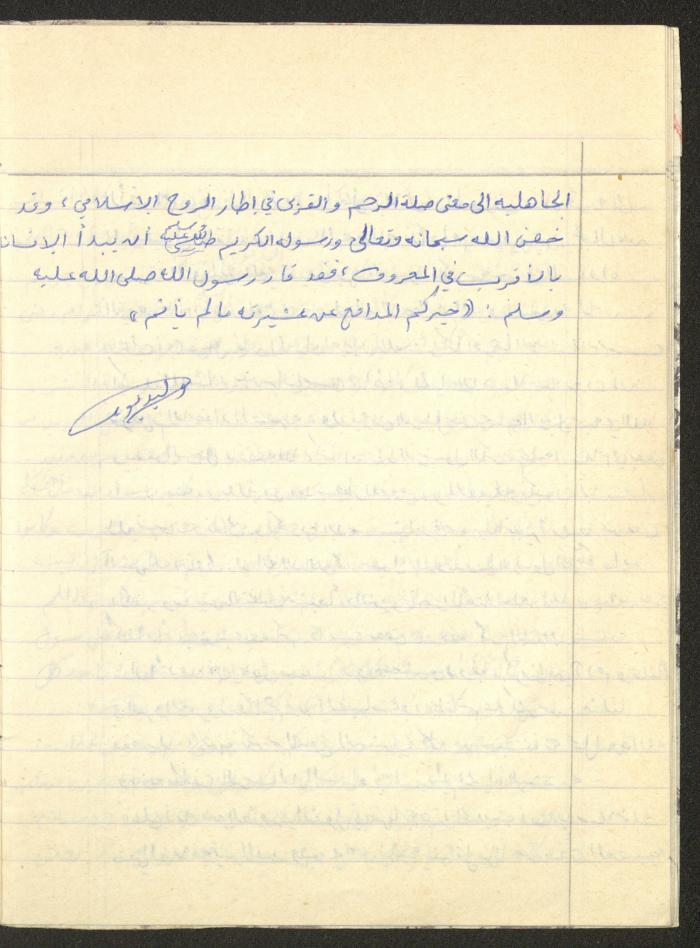 الجاهلية الى معنى صلة الرحم والقربى في إطار الروح الإسلامي ، وقد
حض الله سبحانه وتعالى ورسوله الكريم ﷺ أن يبدأ الإنسان
بالأقرب في المعروف ، فقد قال رسول الله صلى الله عليه
وسلم : « خيركم المدافع عن عشيرته مالم يأثم »